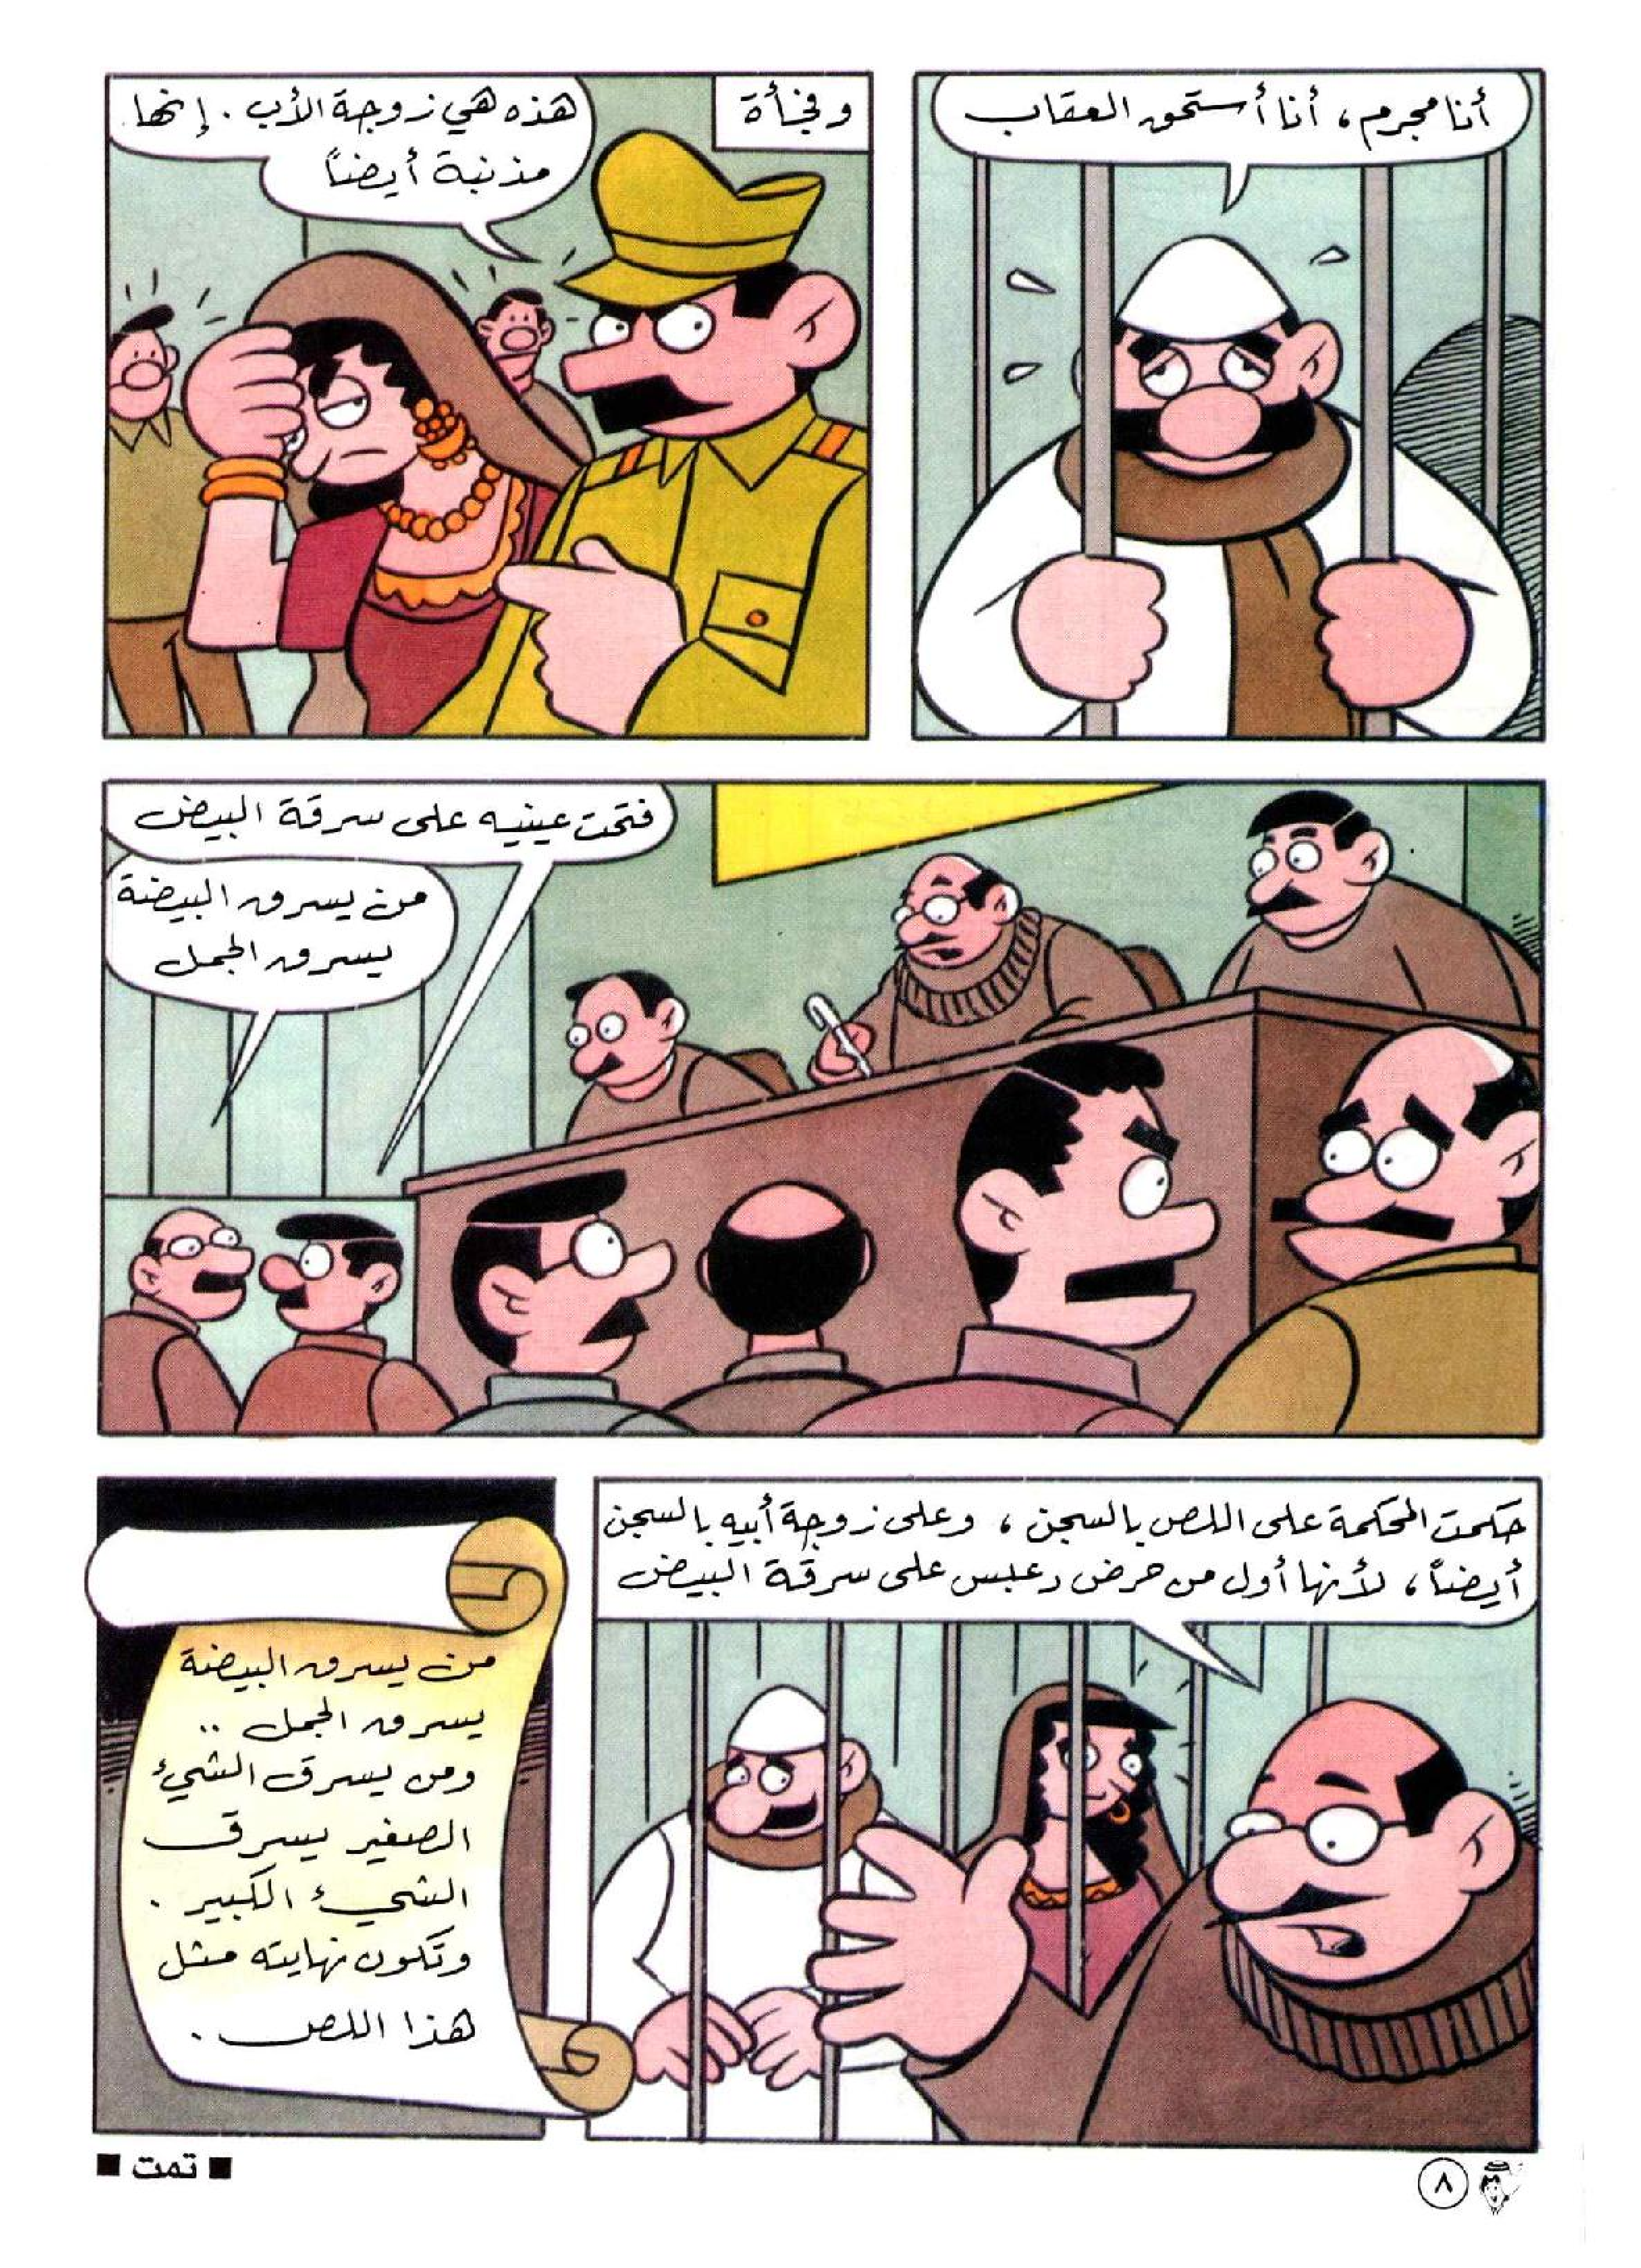 أنا مجرم، أنا أستحق العقاب
وفجأة
هذه هي زوجة الأب. إنها
مذنبة أيضاً
فتحت عينيه على سرقة البيض
من يسرق البيضة
يسرق الجمل
حكمت المحكمة على اللص بالسجن، وعلى زوجة أبيه بالسجن
أيضاً، لأنها أول من حرض دعبس على سرقة البيض
من يسرق البيضة
يسرق الجمل ..
ومن يسرق الشيء
الصغير يسرق
الشيء الكبير.
وتكون نهايته مثل
هذا اللص.
■ تمت ■
٨